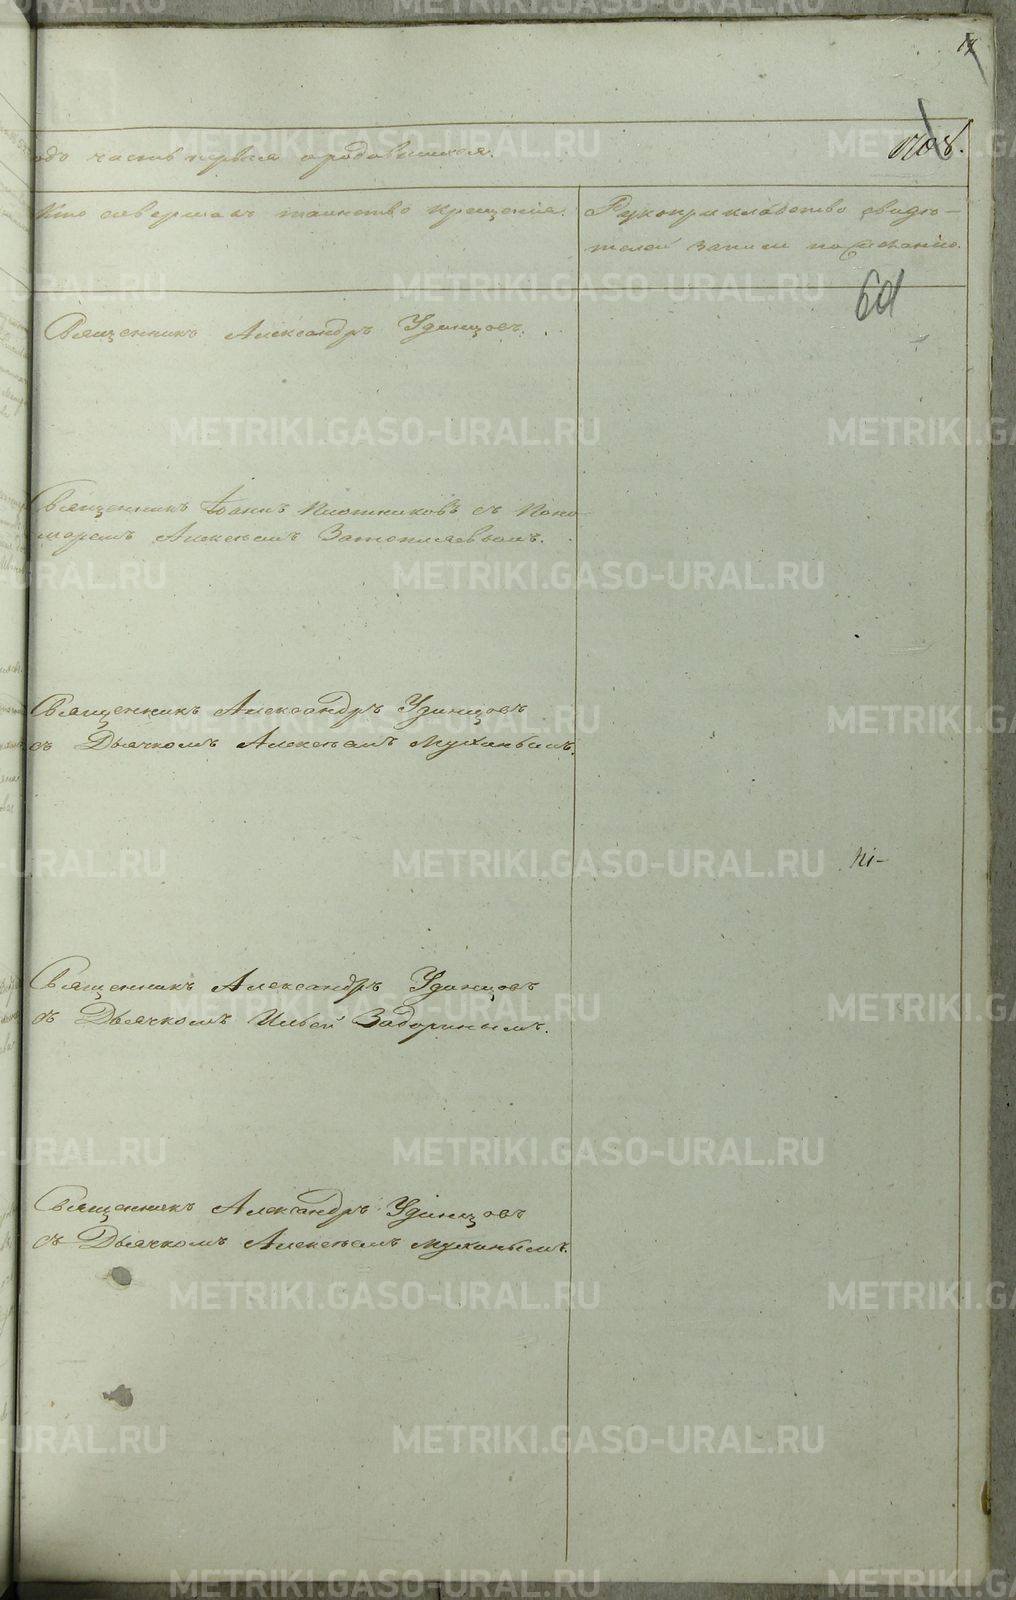 17
одъ часть первая о родившихся.
1708.
Кто совершалъ таинство крещенія.
Рукоприкладство свидѣ-
телей записи по желанію.
601
Священникъ Александръ Удинцовъ.
Священникъ Іоаннъ Плотниковъ съ Поно-
маремъ Алексѣемъ Затопляевымъ.
Священникъ Александръ Удинцовъ
съ Дьячкомъ Алексѣемъ Мухинымъ.
Священникъ Александръ Удинцовъ
съ Дьячкомъ Ильей Задоринымъ.
Священникъ Александръ Удинцовъ
съ Дьячкомъ Алексѣемъ Мухинымъ.
METRIKI.GASO-URAL.RU